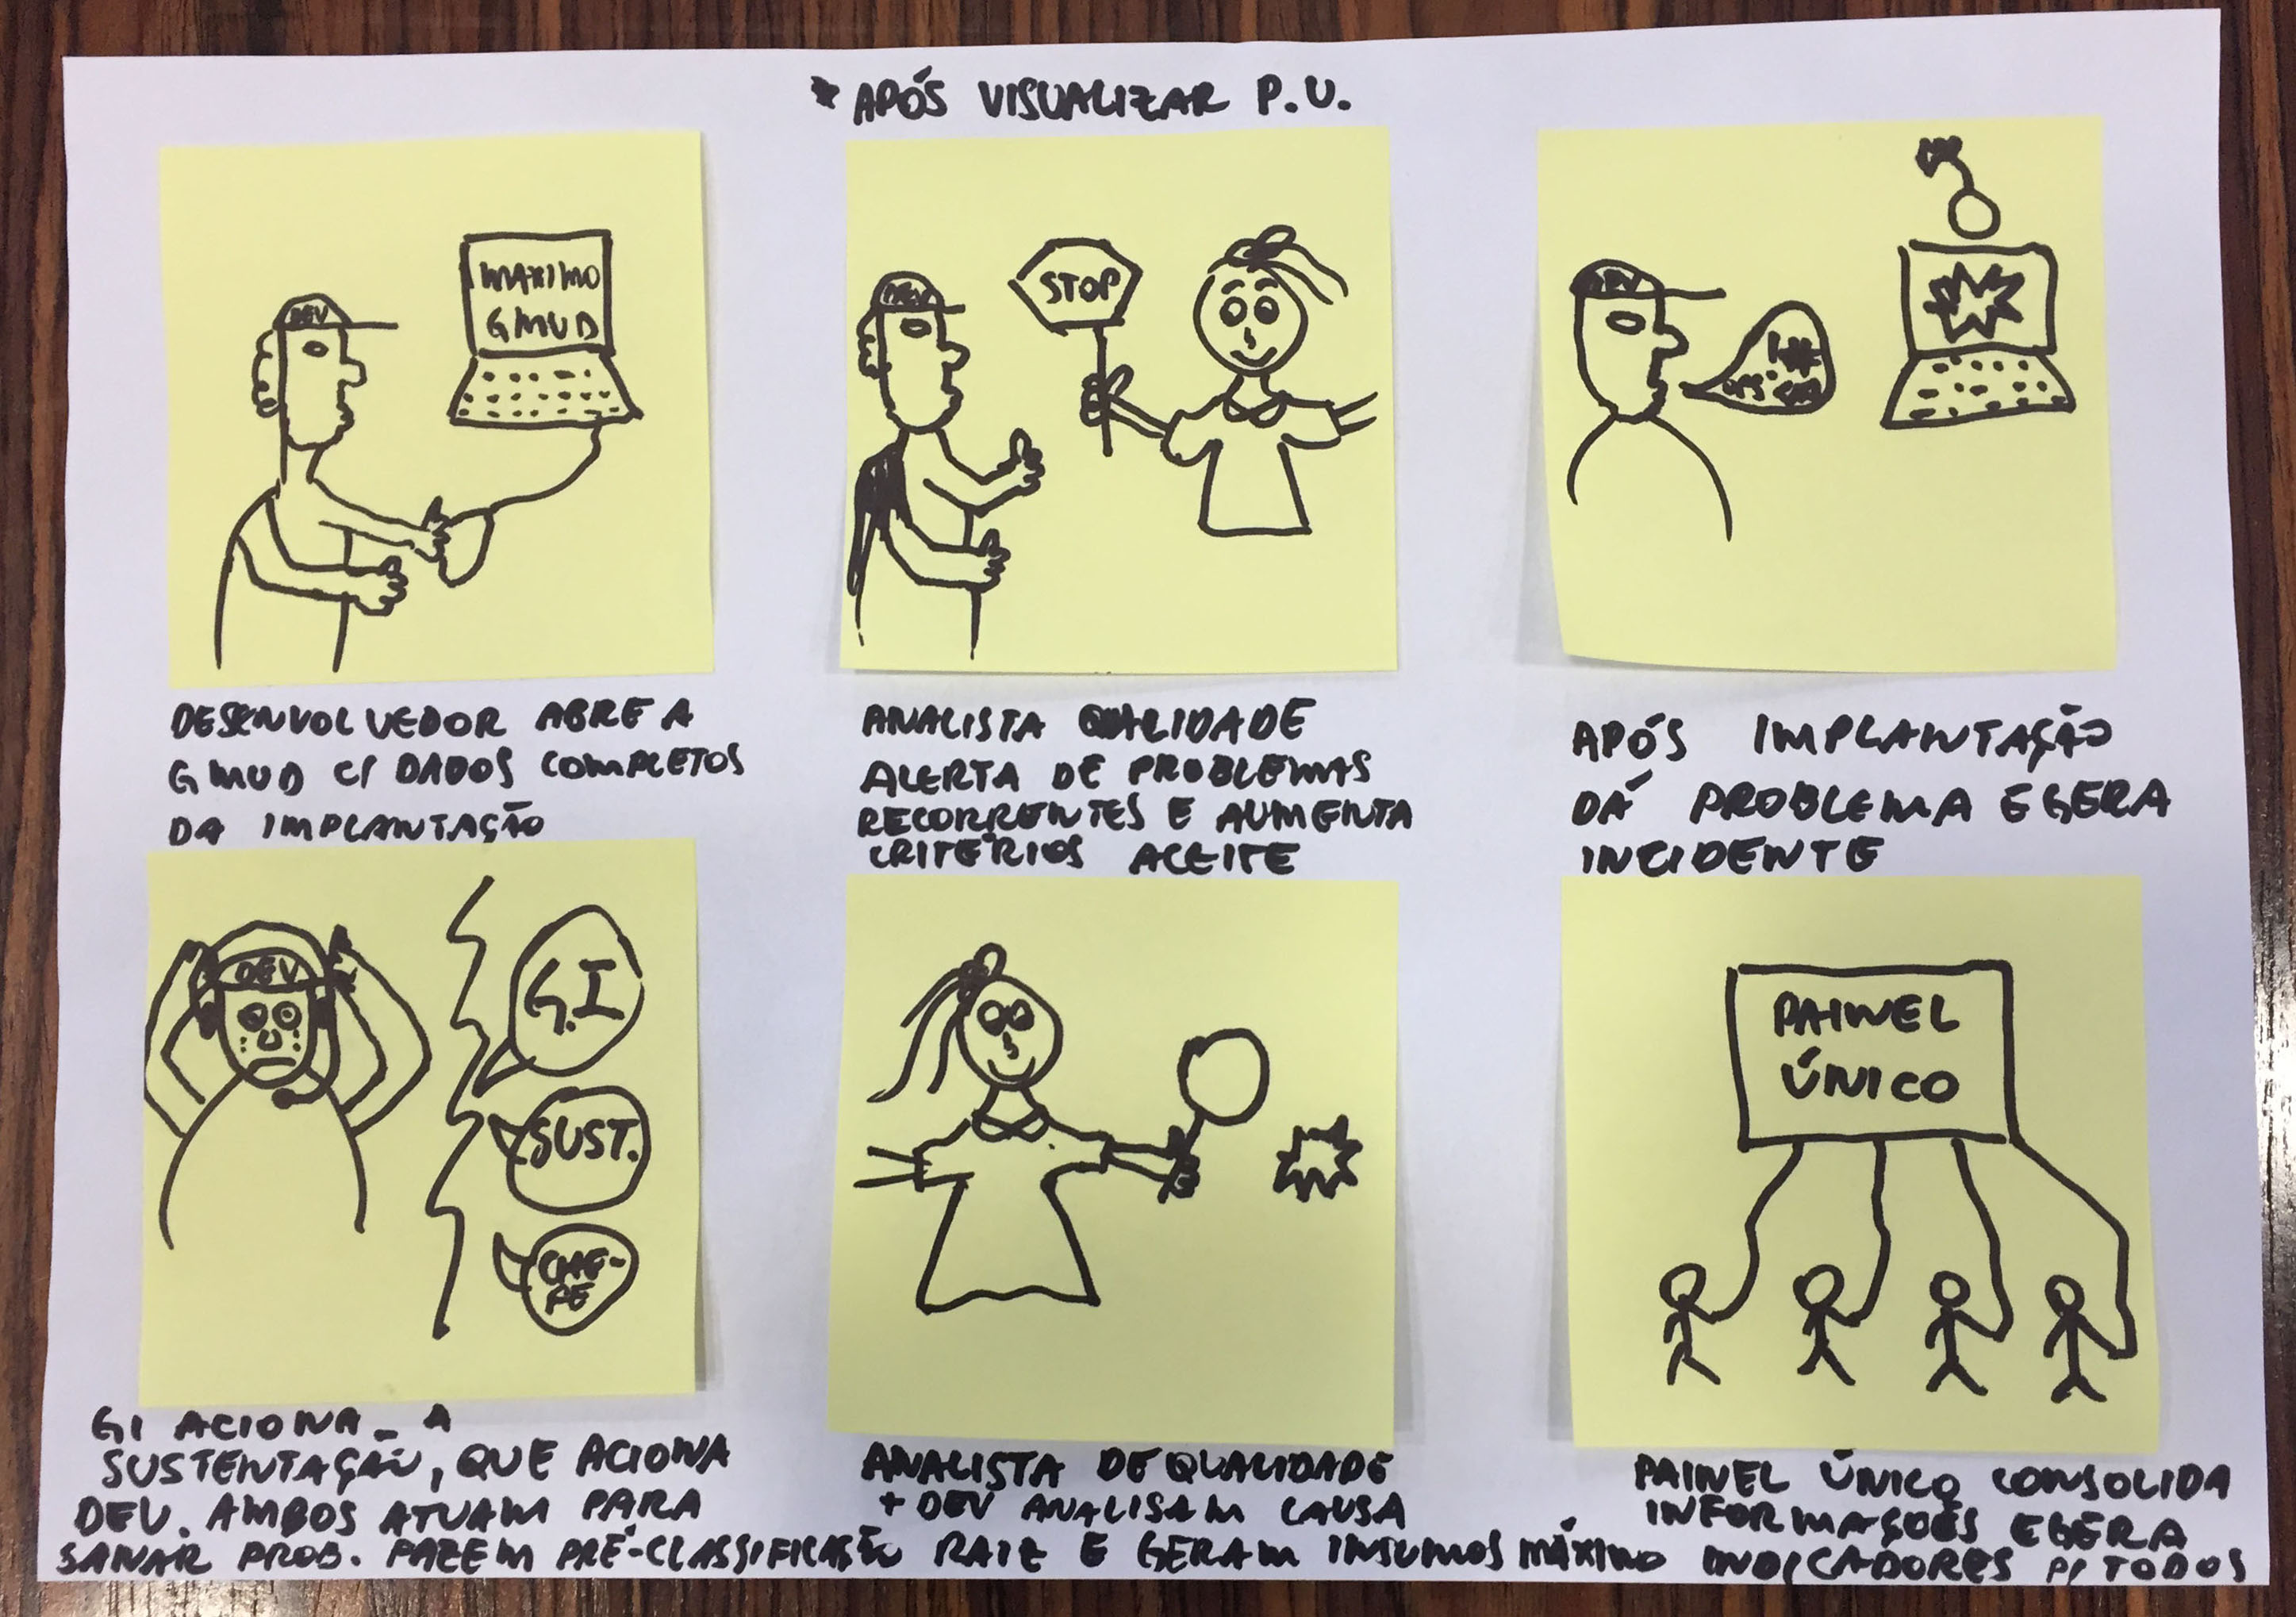 * APÓS VISUALIZAR P.U.
DEV
MAXIMO
GMUD
DESENVOLVEDOR ABRE A
GMUD C/ DADOS COMPLETOS
DA IMPLANTAÇÃO
DEV
STOP
ANALISTA QUALIDADE
ALERTA DE PROBLEMAS
RECORRENTES E AUMENTA
CRITÉRIOS ACEITE
DEV
APÓS IMPLANTAÇÃO
DÁ PROBLEMA E GERA
INCIDENTE
DEV
G.I
SUST.
CHE-
FE
GI ACIONA A
SUSTENTAÇÃO, QUE ACIONA
DEV. AMBOS ATUAM PARA
SANAR PROB. FAZEM PRÉ-CLASSIFICAÇÃO
ANALISTA DE QUALIDADE
+ DEV ANALISAM CAUSA
RAIZ E GERAM INSUMOS MÁXIMO
PAINEL
ÚNICO
PAINEL ÚNICO CONSOLIDA
INFORMAÇÕES E GERA
INDICADORES P/ TODOS